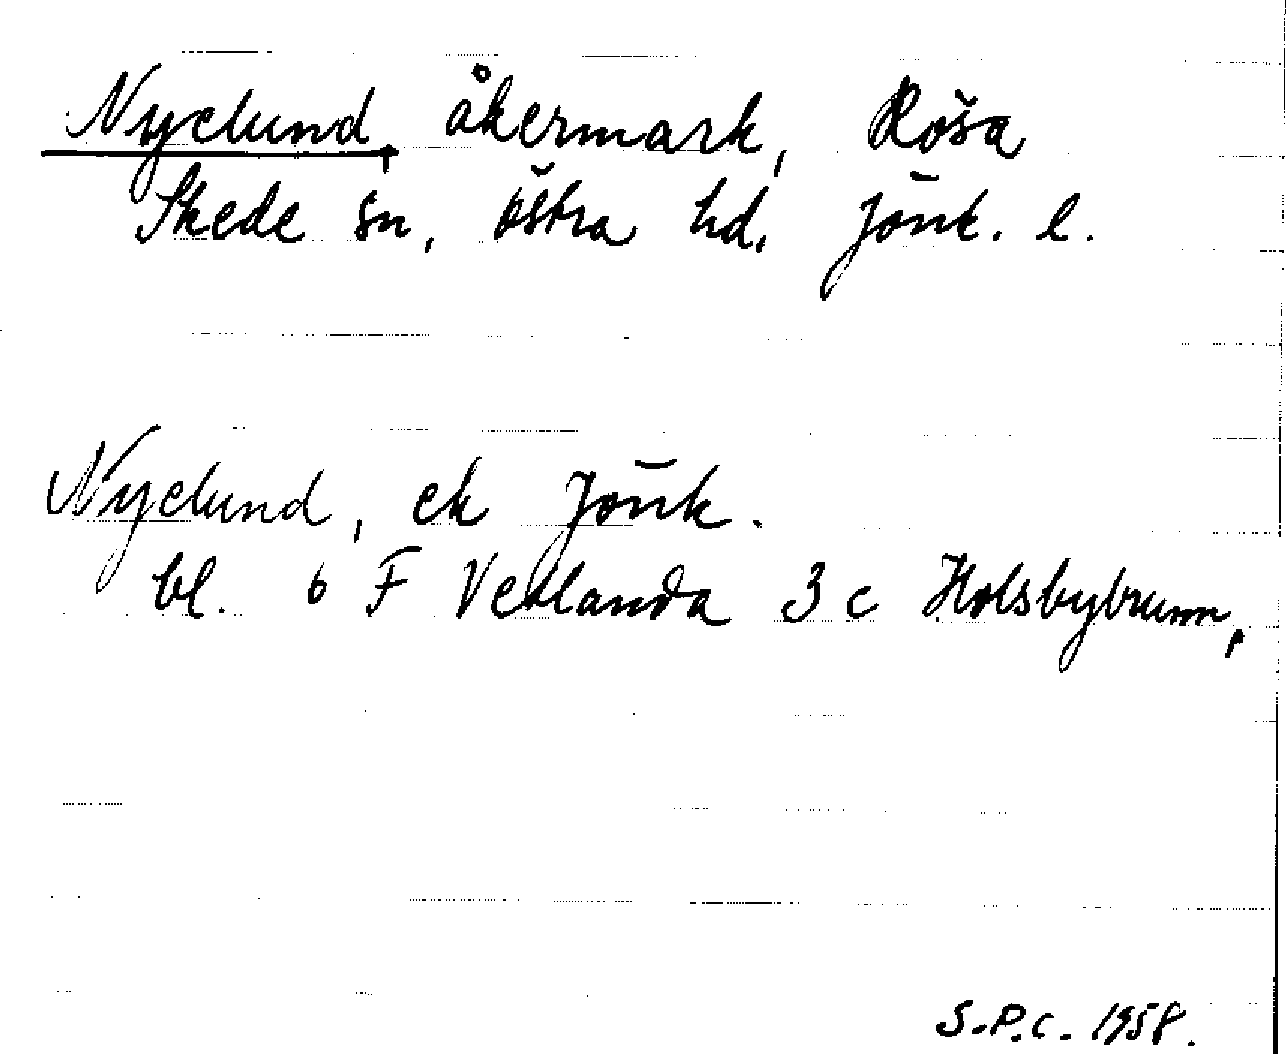 Nyelund, åkermark, Rösa
Skede sn, östra hd, Jönk. l.
Nyelund, ek Jönk.
bl. 6 F Vetlanda 3 c Holsbybrunn,
S.P.C. 1958.